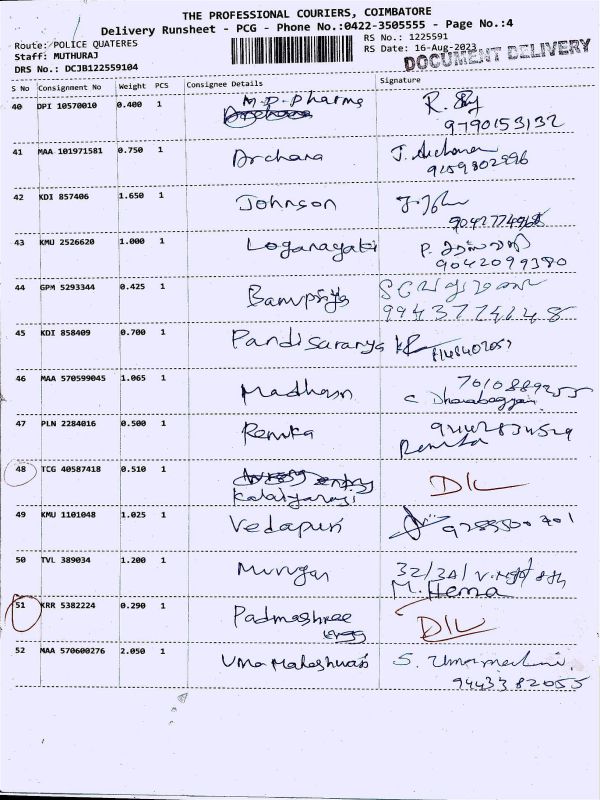 THE PROFESSIONAL COURIERS, COIMBATORE
Delivery Runsheet - PCG - Phone No.:0422-3505555 - Page No.:4
Route: POLICE QUATERES
RS No.: 1225591
Staff: MUTHURAJ
RS Date: 16-Aug-2023
DOCUMENT DELIVERY
DRS No.: DCJB122559104
S No Consignment No Weight PCS Consignee Details Signature
40 DPI 10570010 0.400 1 M.P. Pharma
9790153132
41 MAA 101971581 0.750 1 Archana J. Archana
9159802996
42 KDI 857406 1.650 1 Johnson
43 KMU 2526620 1.000 1 Loganayaki
9042099380
44 GPM 5293344 0.425 1
45 KDI 858409 0.700 1 Pandisaranya
46 MAA 570599045 1.065 1 Madhan
47 PLN 2284016 0.500 1 Renuka
Renuka
48 TCG 40587418 0.510 1 D/L
49 KMU 1101048 1.025 1 Vedapuri
50 TVL 389034 1.200 1 Murugan
M. Hema
51 KRR 5382224 0.290 1 Padmashree D/L
52 MAA 570600276 2.050 1 Uma Maheshwari
9443382055